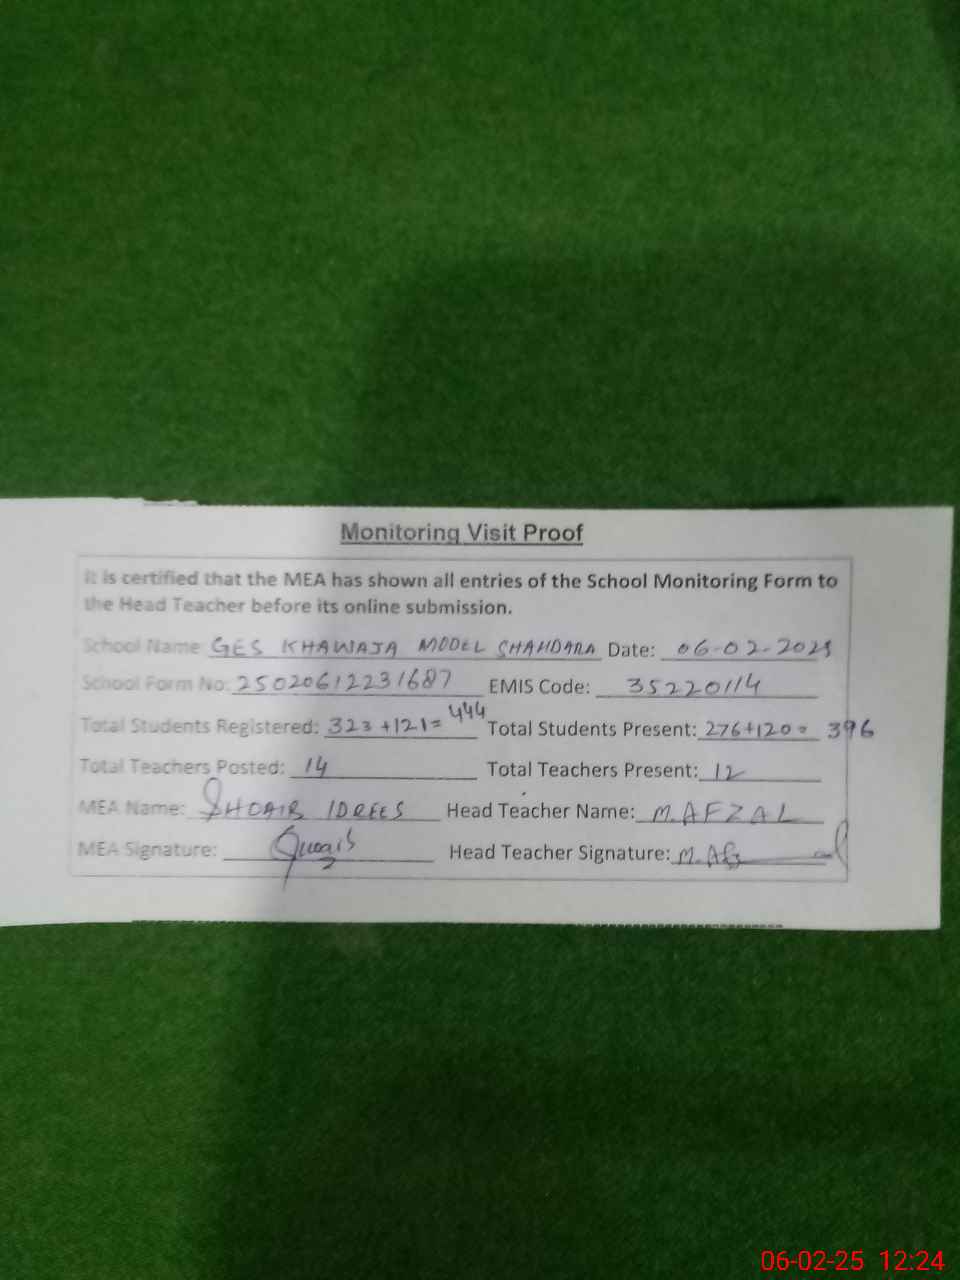 Monitoring Visit Proof
It is certified that the MEA has shown all entries of the School Monitoring Form to
the Head Teacher before its online submission.
School Name: GES KHAWAJA MODEL SHAHDARA Date: 06-02-2025
School Form No: 25020612231687 EMIS Code: 35220114
Total Students Registered: 323+121=444 Total Students Present: 276+120= 396
Total Teachers Posted: 14 Total Teachers Present: 12
MEA Name: SHOAIB IDREES Head Teacher Name: M. AFZAL
MEA Signature: Head Teacher Signature: M. Af
06-02-25 12:24